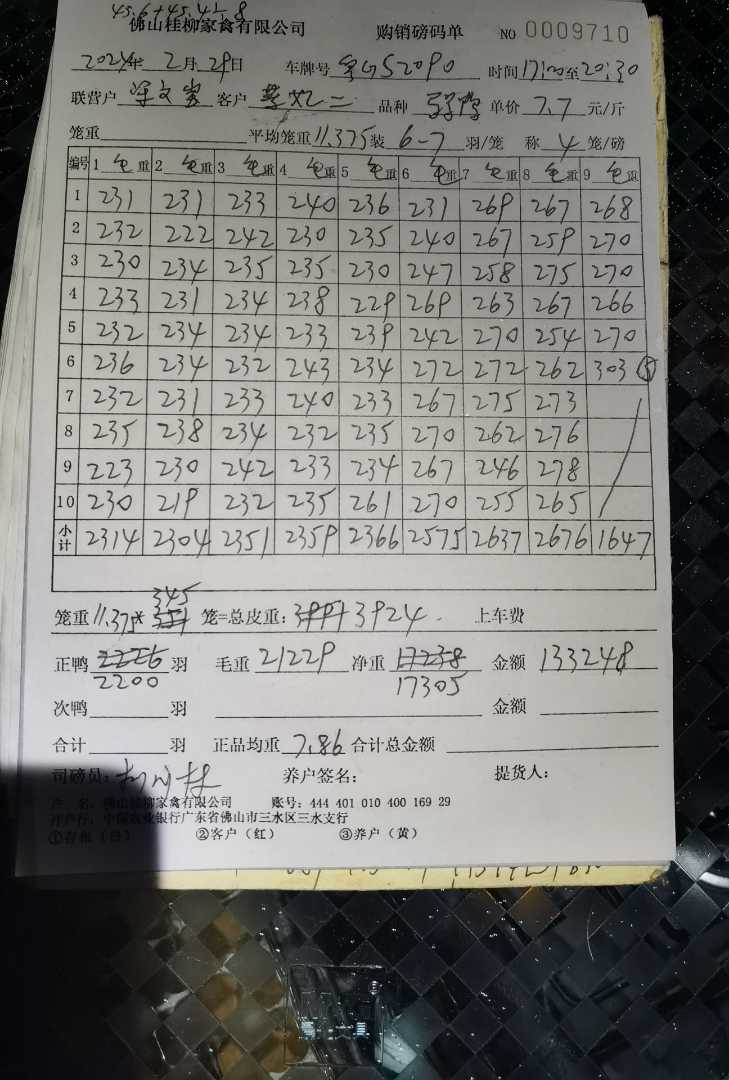 45.6+45.4÷8
佛山桂柳家禽有限公司 购销磅码单 NO 0009710
2024年 2月 29日 车牌号 S2090 时间17:00至20:30
联营户 客户 品种 单价 7.7 元/斤
笼重 平均笼重11.375装 6-7 羽/笼 称 4 笼/磅
编号 1 毛重 2 毛重 3 毛重 4 毛重 5 毛重 6 毛重 7 毛重 8 毛重 9 毛重
1 231 231 233 240 236 231 269 267 268
2 232 222 242 230 235 240 267 259 270
3 230 234 235 235 230 247 258 275 270
4 233 231 234 238 229 269 263 267 266
5 232 234 234 233 239 242 270 254 270
6 236 234 232 243 234 272 272 262 303 ⑤
7 232 231 233 240 233 267 275 273
8 235 238 234 232 235 270 262 276
9 223 230 242 233 234 267 246 278
10 230 219 232 235 261 270 255 265
小计 2314 2304 2351 2359 2366 2575 2637 2676 1647
345
笼重 11.375* 351 笼=总皮重: 3924 上车费
正鸭 2226 羽 毛重 21229 净重 17238 金额 133248
2200 17305
次鸭 羽 金额
合计 羽 正品均重 7.86 合计总金额
司磅员: 养户签名: 提货人:
户 名: 佛山桂柳家禽有限公司 账号: 444 401 010 400 169 29
开户行: 中国农业银行广东省佛山市三水区三水支行
①存根(白) ②客户(红) ③养户(黄)